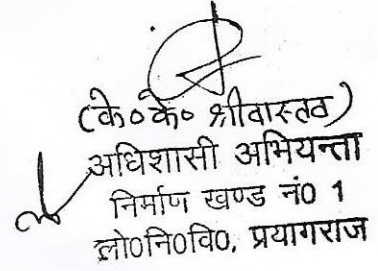 (के०के० श्रीवास्तव)
अधिशासी अभियन्ता
निर्माण खण्ड नं0 1
लो०नि०वि०, प्रयागराज